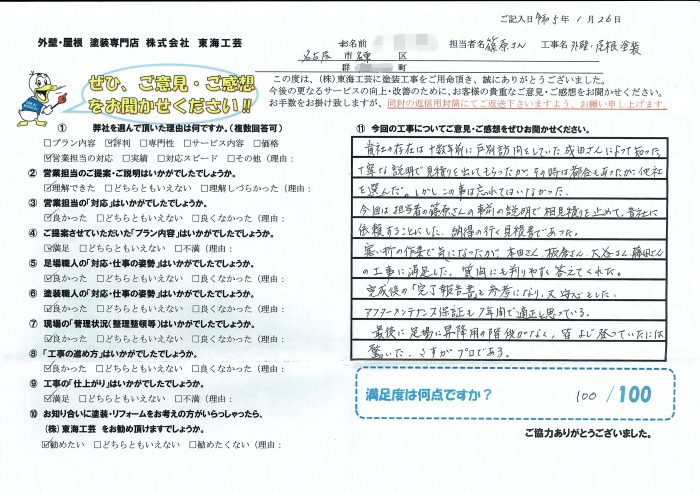 ご記入日 令和5年 1月 26日
外壁・屋根 塗装専門店 株式会社 東海工芸
お名前 担当者名 篠原さん 工事名 外壁・屋根塗装
名古屋 市 緑 区
群 町
ぜひ、ご意見・ご感想
をお聞かせください!!
この度は、(株)東海工芸に塗装工事をご用命頂き、誠にありがとうございました。
今後の更なるサービスの向上・改善のために、お客様の貴重なご意見・ご感想をお聞かせください。
お手数をお掛け致しますが、同封の返信用封筒にてご返送下さいますよう、お願い申し上げます。
① 弊社を選んで頂いた理由は何ですか。(複数回答可)
□プラン内容 ☑評判 □専門性 □サービス内容 □価格
☑営業担当の対応 □実績 □対応スピード □その他 (理由:
② 営業担当のご提案・ご説明はいかがでしたでしょうか。
☑理解できた □どちらともいえない □理解しづらかった (理由:
③ 営業担当の「対応」はいかがでしたでしょうか。
☑良かった □どちらともいえない □良くなかった (理由:
④ ご提案させていただいた「プラン内容」はいかがでしたでしょうか。
☑満足 □どちらともいえない □不満 (理由:
⑤ 足場職人の「対応・仕事の姿勢」はいかがでしたでしょうか。
☑良かった □どちらともいえない □良くなかった (理由:
⑥ 塗装職人の「対応・仕事の姿勢」はいかがでしたでしょうか。
☑良かった □どちらともいえない □良くなかった (理由:
⑦ 現場の「管理状況(整理整頓等)」はいかがでしたでしょうか。
☑良かった □どちらともいえない □良くなかった (理由:
⑧ 「工事の進め方」はいかがでしたでしょうか。
☑良かった □どちらともいえない □良くなかった (理由:
⑨ 工事の「仕上がり」はいかがでしたでしょうか。
☑満足 □どちらともいえない □不満 (理由:
⑩ お知り合いに塗装・リフォームをお考えの方がいらっしゃったら、
(株)東海工芸 をお勧め頂けますでしょうか。
☑勧めたい □どちらともいえない □勧めたくない (理由:
⑪ 今回の工事についてご意見・ご感想をぜひお聞かせください。
貴社の存在は十数年前に戸別訪問をしていた成田さんによって知った。
丁寧な説明で見積りを出してもらったが、その時は都合もあったが他社
を選んだ。しかしこの事は忘れてはいなかった。
今回は担当者の篠原さんの事前の説明で相見積りを止めて、貴社に
依頼することにした。納得の行く見積書であった。
寒い折の作業で気になったが、本田さん、板原さん、大谷さん、藤田さん
の工事に満足した。質問にも判りやすく答えてくれた。
完成後の「完了報告書」も参考になり、又安心とした。
アフターメンテナンス保証も7年間で適正と思っている。
最後に足場に昇降用の階段がなく、皆よじ登っていたには
驚いた。さすがプロである。
満足度は何点ですか? 100 /100
ご協力ありがとうございました。